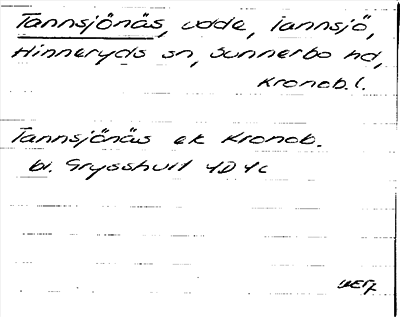 Tannsjönäs, udde, Tannsjö,
Hinneryds sn, Sunnerbo hd,
Kronob. l.
Tannsjönäs ek Kronob.
bl. Grysshult 4D 4c